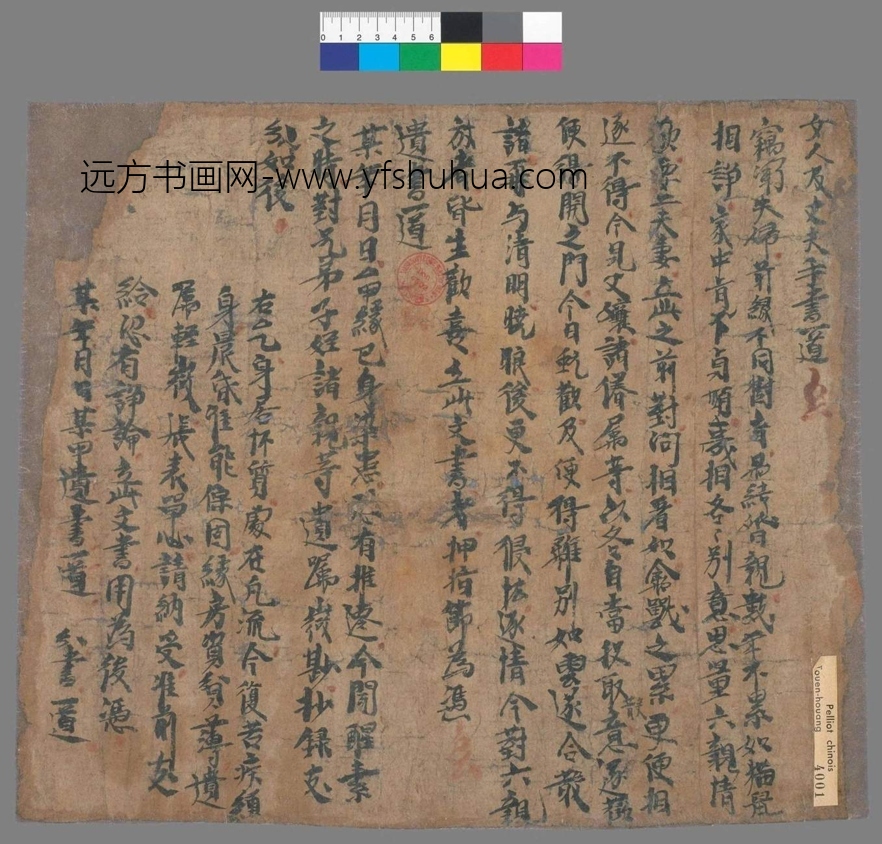 女人及丈夫手書一道
竊聞夫婦前緣不同樹者易結婚親數年不累如猫鼠
相諍家中肯不貞順義相各〻別意思量六親情
歡要二夫妻立此之前對問相看如禽獸之累更便相
逐不得今見父孃諸眷屬等以各自當投取意逐歡
便得開之門今日甋歡及便得離別如雲遂合散
諸再与清明曉眼後更不得侵悋逐情今對六親
放者皆生歡喜立此文書者押指節為憑
遺書一道
某年月日厶甲緣己身染患恐有推遷今聞醒素
之時對兄弟子姪諸親等遺囑嵗勘抄錄支
分如後
右厶乙身居怀質處在凡流今復苦疾纏
身晨昏難能保因緣房資貧薄遺
屬輕微張表單心請納受准前支
給恐有諍論立此文書用為後憑
某年月日某甲遺書一道
分書一道
远方书画网-www.yfshuhua.com
Pelliot chinois
Touen-houang
4001
0 1 2 3 4 5 6